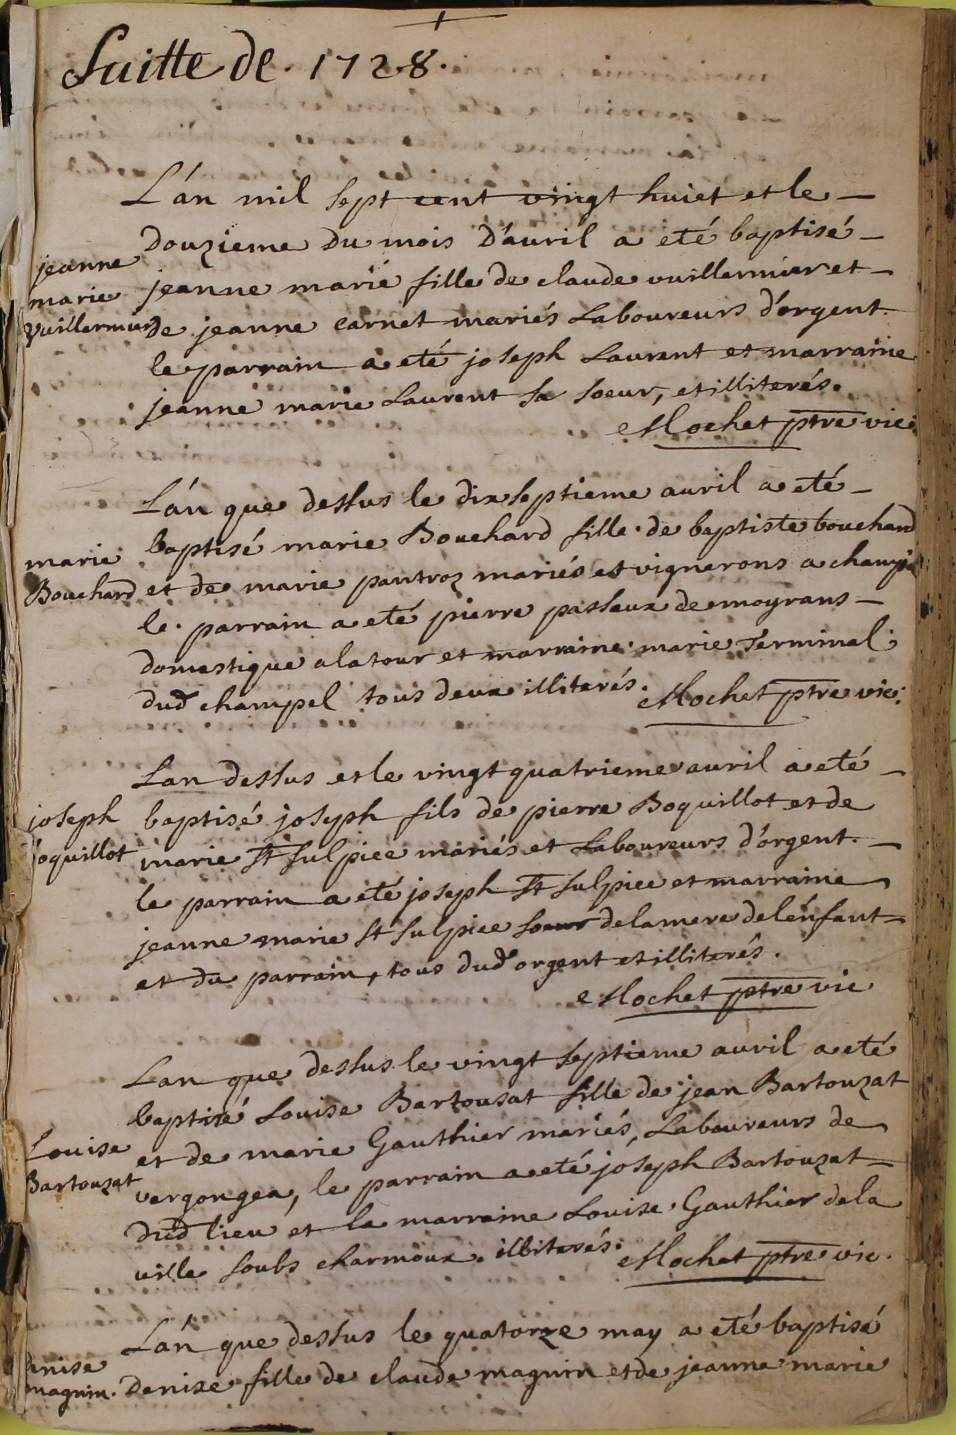 Suitte de 1728.
L'án mil sept cent vingt huict et le
douzieme du mois d'auril a eté baptisé
jeanne
marie
vuillermier
jeanne marie fille de claude vuillermier et
de jeanne carnet mariés Laboureurs d'orgent
le parrain a eté joseph Laurent et marraine
jeanne marie Laurent sa soeur, et illiterés.
Mochet ptre vic.
L'án que dessus le dixseptieme auril a eté
marie
Bouchard
baptisé marie Bouchard fille de baptiste bouchard
et de marie pantroz mariés et vignerons a champ
le parrain a eté pierre passeux de moyrans
domestique a latour et marraine marie Terminel
dud champel tous deux illiterés. Mochet ptre vic.
Lan dessus et le vingtquatrieme auril a eté
joseph
boquillot
baptisé joseph fils de pierre Boquillot et de
marie st sulpice mariés et Laboureurs d'orgent.
le parrain a eté joseph st sulpice et marraine
jeanne marie st sulpice soeur delamere delénfant
et du parrain, tous dud orgent et illiterés.
Mochet ptre vic
Lan que dessus le vingt septieme auril a eté
Louise
Bartouzat
baptisé Louise Bartousat fille de jean Bartouzat
et de marie Gauthier mariés, Laboureurs de
vergongea, le parrain a eté joseph Bartouzat
dud lieu et la marraine Louise Gauthier dela
ville soubs charmoux. illiterés. Mochet ptre vic.
Lán que dessus le quatorze may a eté baptisé
denise
magnin.
Denise fille de claude magnin et de jeanne marie